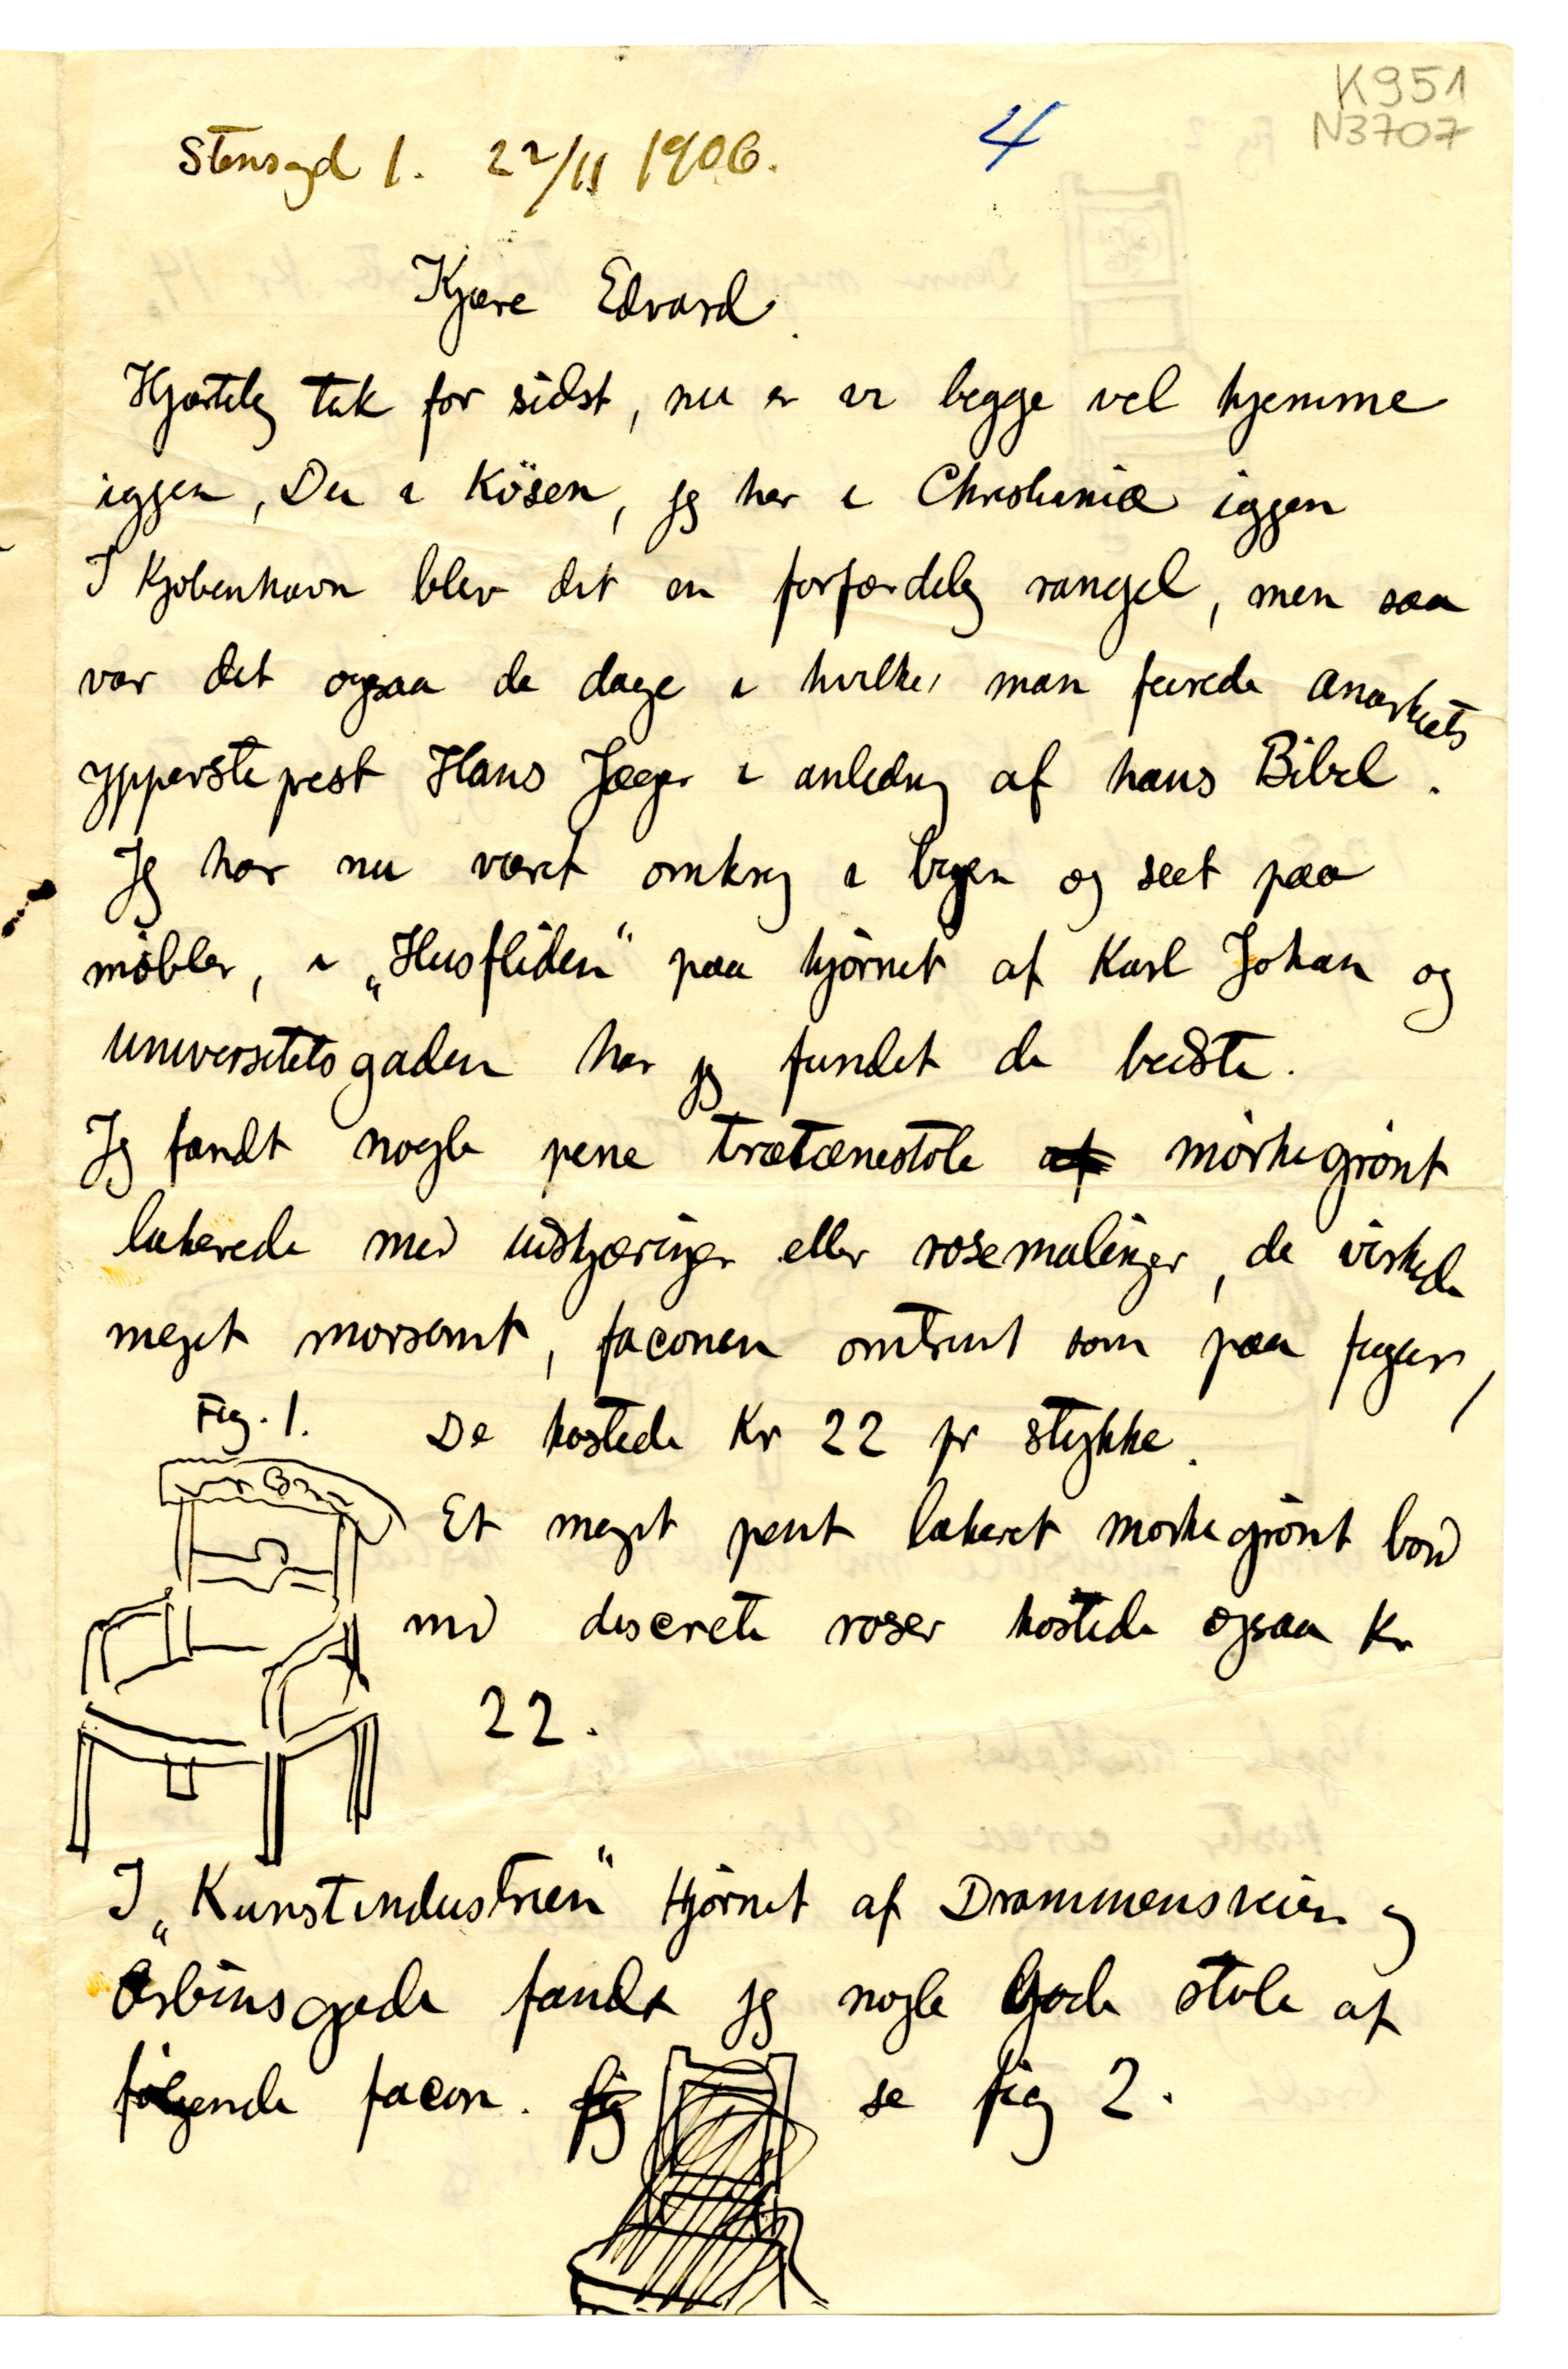 K951
N3707
4
Stensgd 1. 22/11 1906.
Kjære Edvard.
Hjærtelig tak for sidst, nu er vi begge vel hjemme
iggen, Du i Kösen, jeg her i Christiania iggen
I Kjøbenhavn blev det en forfærdelig rangel, men saa
var det ogsaa de dage i hvilke man feirede anarkiets
ypperstepræst Hans Jæger i anledning af hans Bibel.
Jeg har nu været omkring i byen og seet paa
møbler, i „Husfliden“ paa hjørnet af Karl Johan og
universitetsgaden har jeg fundet de bedste.
Jeg fandt nogle pene trælænestole af mørkegrønt
lakerede med udskjæringer eller rosemalinger, de virkede
meget morsomt, faconen omtrent som paa figur 1
Fig. 1. De kostede Kr 22 pr stykke.
Et meget pent lakeret mørkegrønt bord
med discrete roser kostede ogsaa Kr
22.
I „Kunstindustrien“ Hjørnet af Drammensveien og
Arbinsgade fandt jeg nogle gode stole af
følgende facon. fig se fig 2.